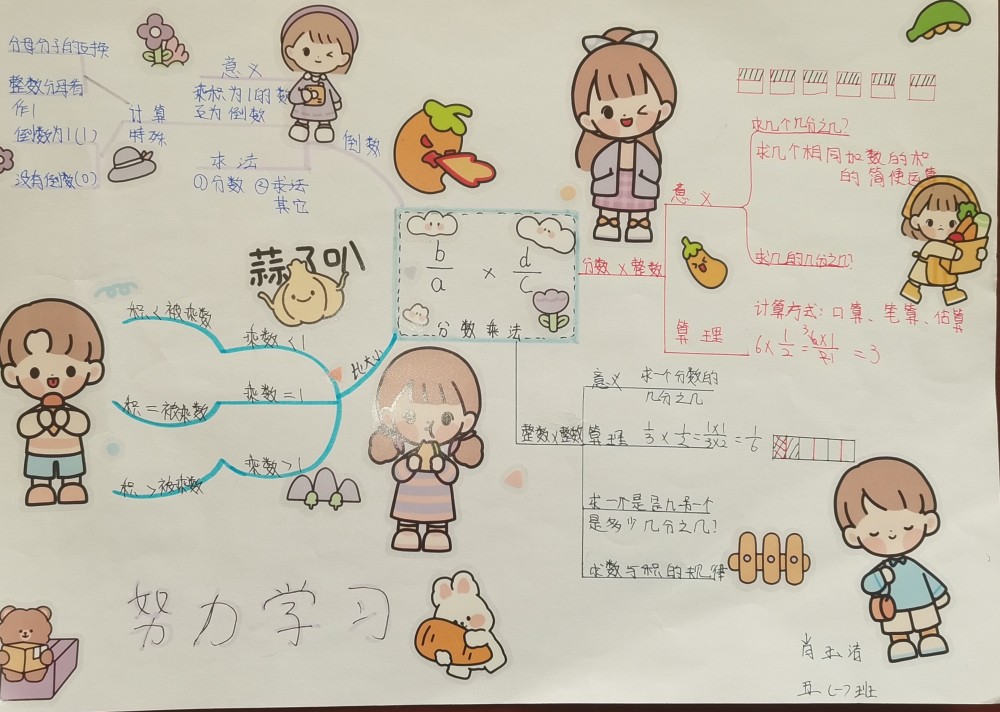 分母分子的互换
整数分母看
作1
倒数为1(1)
没有倒数(0)
计算
特殊
意义
乘积为1的数
互为倒数
求法
①分数 ②求法
其它
倒数
蒜了叭
b/a × d/c
分数乘法
分数×整数
意义
求几个几分之几?
求几个相同加数的和
的简便运算
求几的几分之几?
算理
计算方式:口算、笔算、估算
6×1/2=
=3
比大小
乘数<1
积<被乘数
乘数=1
积=被乘数
乘数>1
积>被乘数
整数×整数
意义 求一个分数的
几分之几
算理 1/3×1/2=1×1/3×2=1/6
求一个是
另一个
是多少几分之几?
求数与积的规律
努力学习
肖玉清
五(一)班